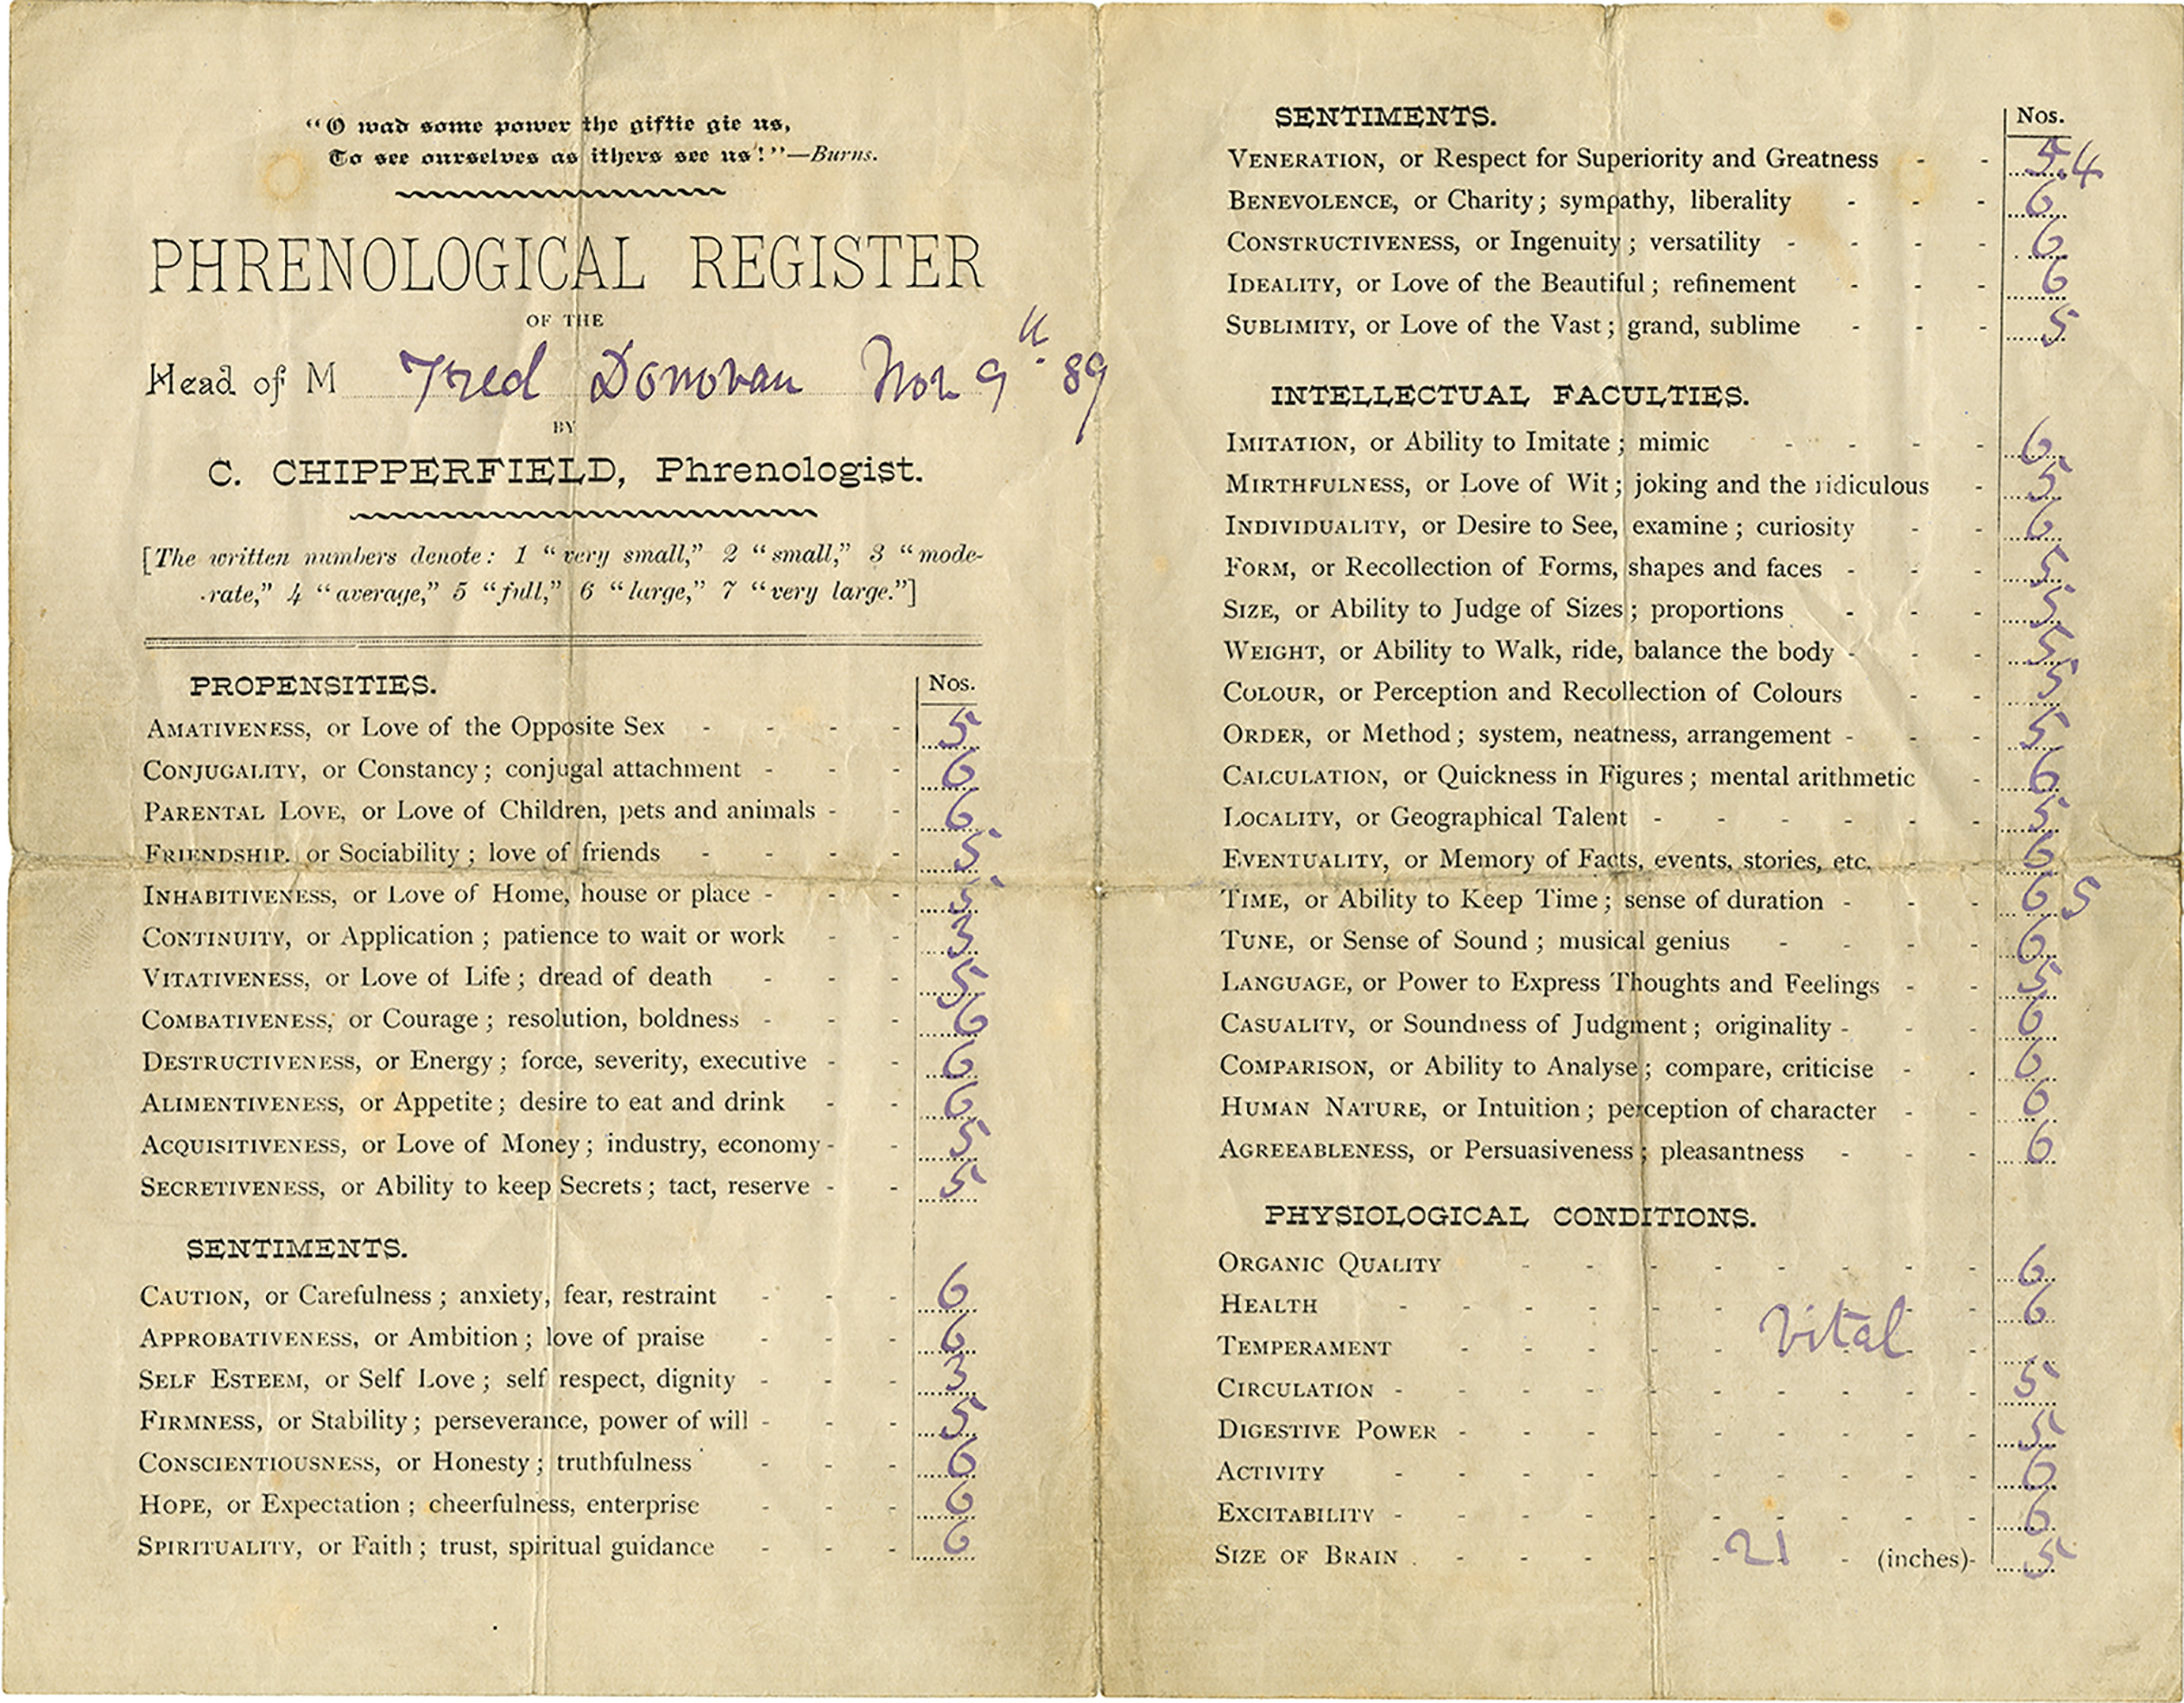 "O wad some power the giftie gie us,
To see ourselves as ithers see us!"—Burns.
PHRENOLOGICAL REGISTER
OF THE
Head of M Fred Donovan Nov 9th 89
BY
C. CHIPPERFIELD, Phrenologist.
[The written numbers denote: 1 "very small," 2 "small," 3 "mode-
rate," 4 "average," 5 "full," 6 "large," 7 "very large."]
PROPENSITIES. Nos.
AMATIVENESS, or Love of the Opposite Sex - - - - 5
CONJUGALITY, or Constancy; conjugal attachment - - - 6
PARENTAL LOVE, or Love of Children, pets and animals - - 6
FRIENDSHIP. or Sociability; love of friends - - - - 5
INHABITIVENESS, or Love of Home, house or place - - - 5
CONTINUITY, or Application; patience to wait or work - - 3
VITATIVENESS, or Love of Life; dread of death - - - 5
COMBATIVENESS, or Courage; resolution, boldness - - - 6
DESTRUCTIVENESS, or Energy; force, severity, executive - - 6
ALIMENTIVENESS, or Appetite; desire to eat and drink - - 6
ACQUISITIVENESS, or Love of Money; industry, economy - - 5
SECRETIVENESS, or Ability to keep Secrets; tact, reserve - - 5
SENTIMENTS.
CAUTION, or Carefulness; anxiety, fear, restraint - - - 6
APPROBATIVENESS, or Ambition; love of praise - - - 6
SELF ESTEEM, or Self Love; self respect, dignity - - - 3
FIRMNESS, or Stability; perseverance, power of will - - - 5
CONSCIENTIOUSNESS, or Honesty; truthfulness - - - 6
HOPE, or Expectation; cheerfulness, enterprise - - - 6
SPIRITUALITY, or Faith; trust, spiritual guidance - - - 6
SENTIMENTS. Nos.
VENERATION, or Respect for Superiority and Greatness - - 5.4
BENEVOLENCE, or Charity; sympathy, liberality - - - 6
CONSTRUCTIVENESS, or Ingenuity; versatility - - - - 6
IDEALITY, or Love of the Beautiful; refinement - - - 6
SUBLIMITY, or Love of the Vast; grand, sublime - - - 5
INTELLECTUAL FACULTIES.
IMITATION, or Ability to Imitate; mimic - - - - 6
MIRTHFULNESS, or Love of Wit; joking and the ridiculous - 5
INDIVIDUALITY, or Desire to See, examine; curiosity - - 6
FORM, or Recollection of Forms, shapes and faces - - - 5
SIZE, or Ability to Judge of Sizes; proportions - - - 5
WEIGHT, or Ability to Walk, ride, balance the body - - - 5
COLOUR, or Perception and Recollection of Colours - - 5
ORDER, or Method; system, neatness, arrangement - - - 5
CALCULATION, or Quickness in Figures; mental arithmetic - 6
LOCALITY, or Geographical Talent - - - - - - 5
EVENTUALITY, or Memory of Facts, events, stories, etc. - - 6
TIME, or Ability to Keep Time; sense of duration - - - 6 5
TUNE, or Sense of Sound; musical genius - - - - 6
LANGUAGE, or Power to Express Thoughts and Feelings - - 5
CASUALITY, or Soundness of Judgment; originality - - - 6
COMPARISON, or Ability to Analyse; compare, criticise - - 6
HUMAN NATURE, or Intuition; perception of character - - 6
AGREEABLENESS, or Persuasiveness; pleasantness - - - 6
PHYSIOLOGICAL CONDITIONS.
ORGANIC QUALITY - - - - - - - - 6
HEALTH - - - - - - - - - - 6
TEMPERAMENT - - - - - Vital
CIRCULATION - - - - - - - - - - 5
DIGESTIVE POWER - - - - - - - - - 5
ACTIVITY - - - - - - - - - - 6
EXCITABILITY - - - - - - - - - - 6
SIZE OF BRAIN - - - - - 21 - (inches)- 5